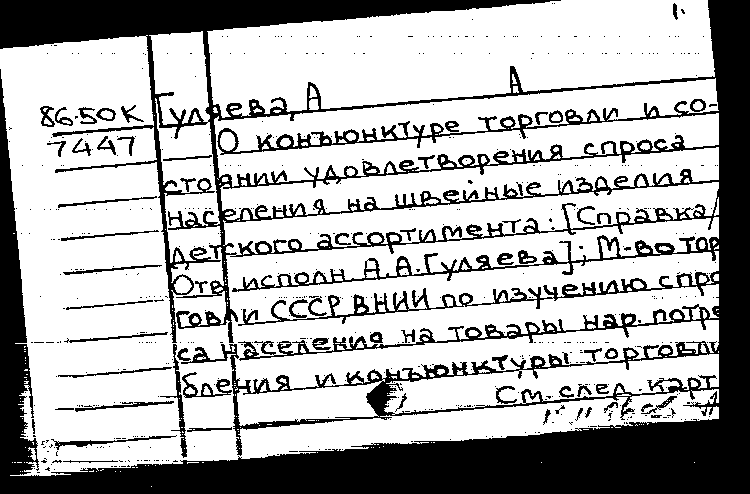 1.
86.50К Гуляева, А А
7447 О конъюнктуре торговли и со-
стоянии удовлетворения спроса
населения на швейные изделия
детского ассортимента: [Справка/
Отв. исполн А.А.Гуляева]; М-во тор
говли СССР, ВНИИ по изучению спро
са населения на товары нар. потре
бления и конъюнктуры торговли
См. след. карт